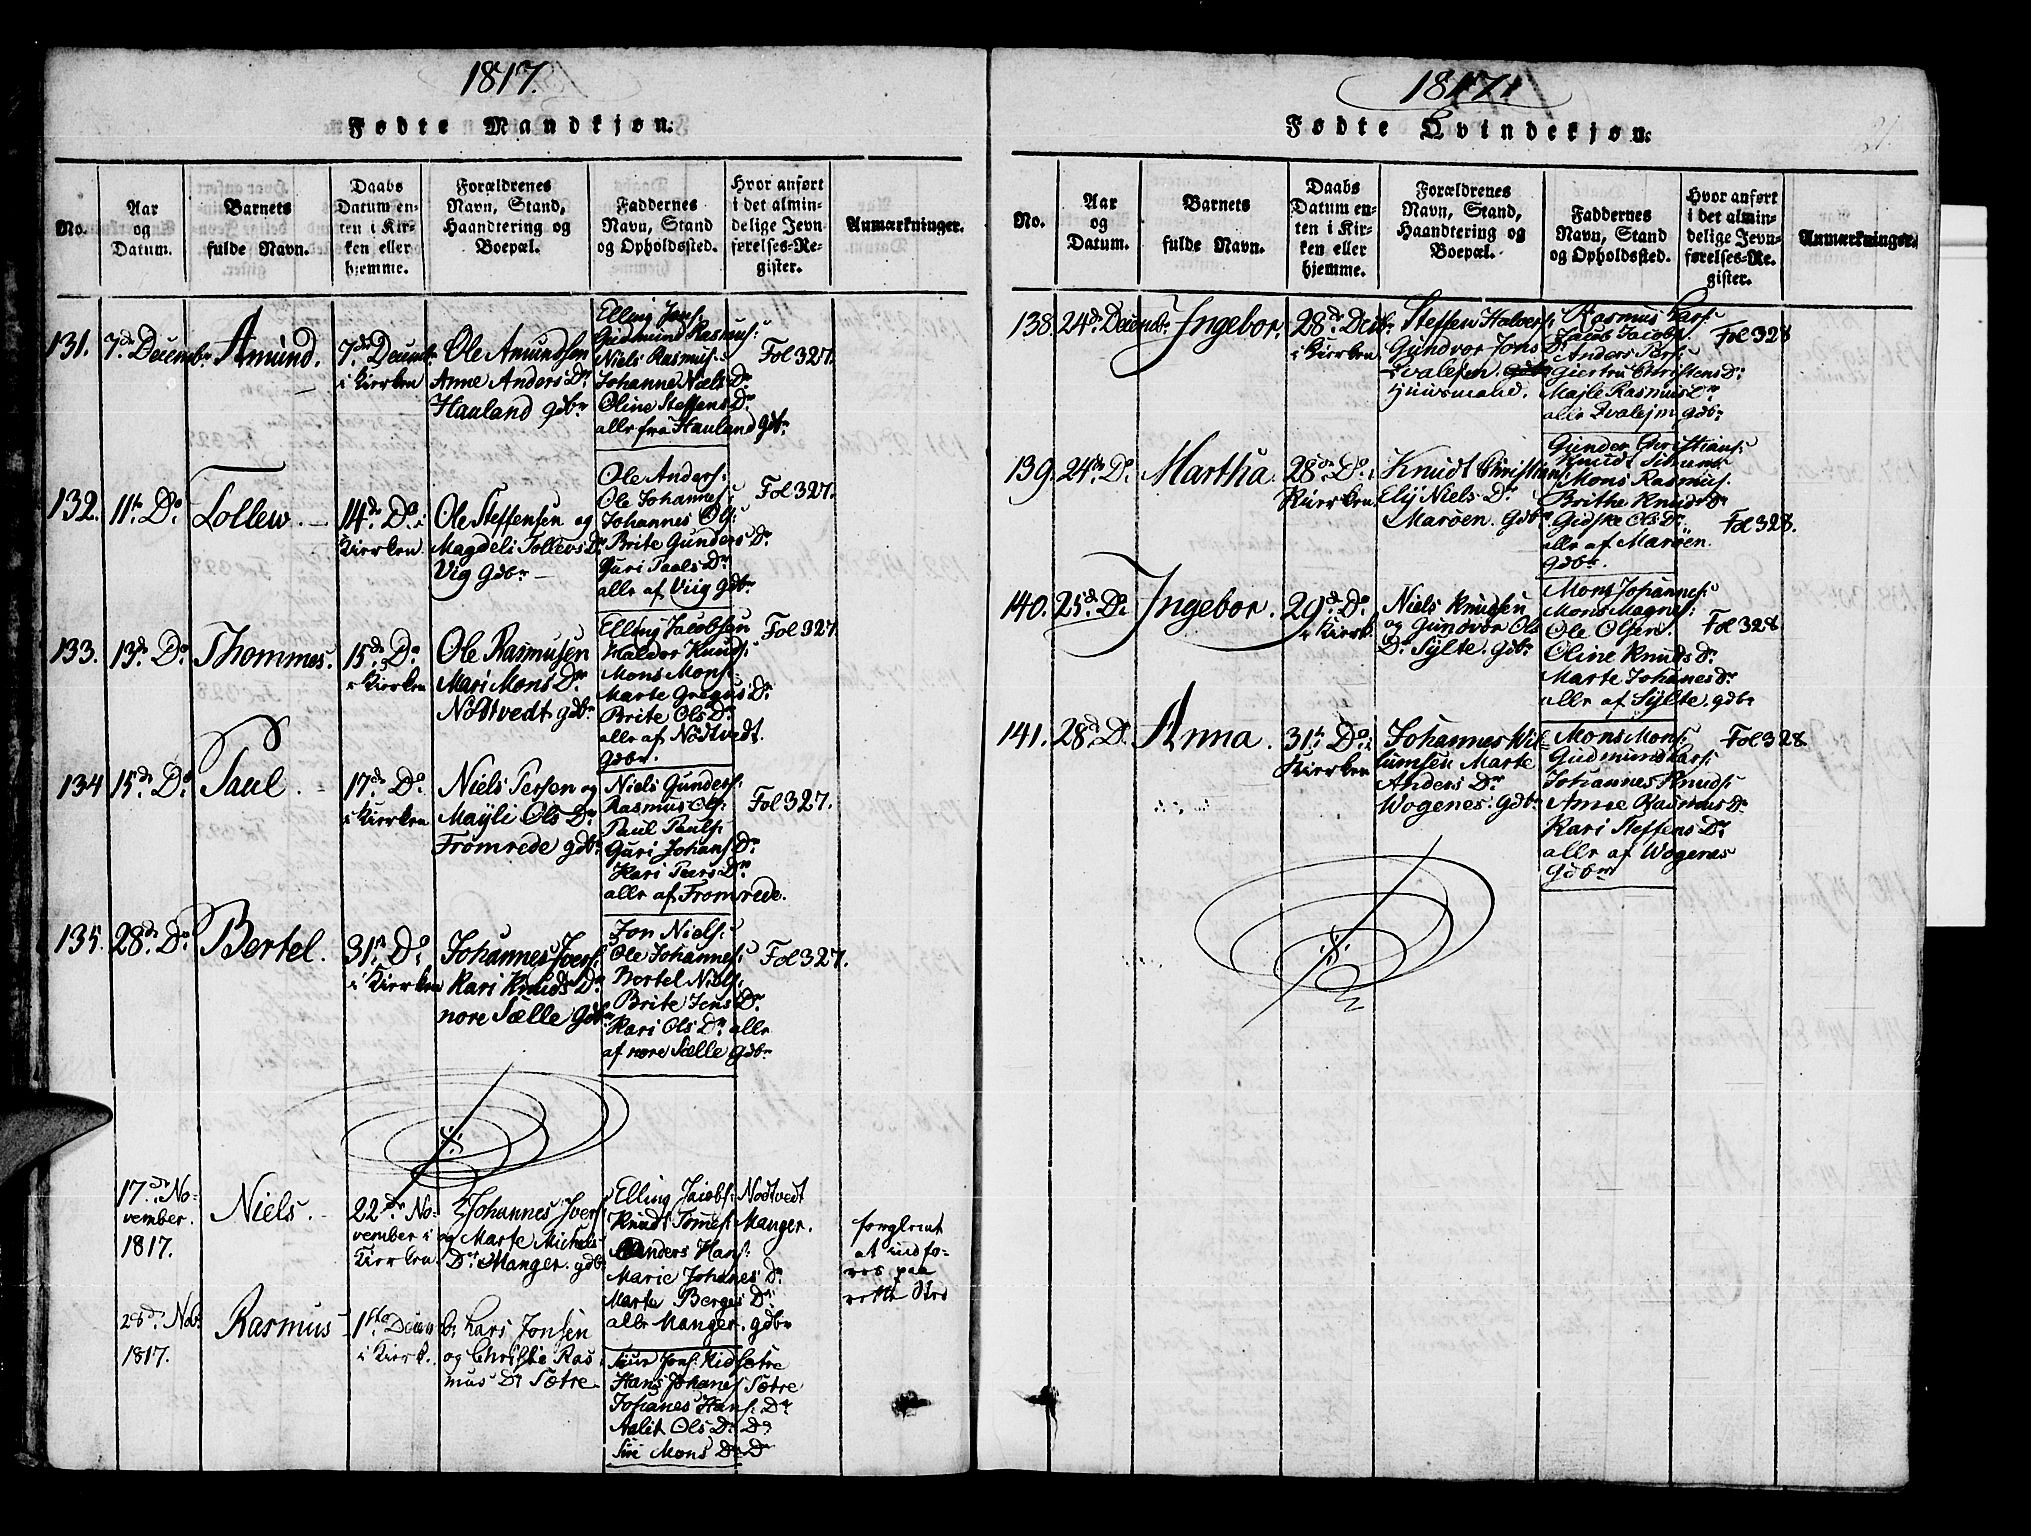 1817.
Fødte Mandkjøn.
No.
Aar
og
Datum.
Barnets
fulde Navn.
Daabs
Datum en-
ten i Kir-
ken eller
hjemme.
Forældrenes
Navn, Stand,
Haandtering og
Boepæl.
Faddernes
Navn, Stand
og Opholdssted.
Hvor anført
i det almin-
delige Jevn-
førelses-Re-
gister.
Anmærkninger.
131.
7de Decembr
Amund.
7de Decemb.
i Kirken
Ole Amundsen
Anne Anders Dr
Hauland gdbr
Elling Jons:
Gudmund Rasmus:
Niels Rasmus:
Johanne Niels Dr
Oline Steffens Dr
alle fra Hauland gdbr
Fol 327.
132.
11te Do
Tollew.
14de Do i
Kirken
Ole Steffensen og
Magdeli Tollevs Dr
Vig Gdbr
Ole Anders:
Ole Johannes:
Johannes Ols:
Brite Gunders Dr
Guri Paals Dr
alle af Viig gdbr
Fol 327.
133.
13de Do
Thommes.
15de Do
i Kirken
Ole Rasmusen
Mari Mons Dr
Nødtvedt gdbr
Elling Jacobsen
Haldor Knuds:
Mons Mons:
Marte Gregus Dr
Brite Ols Dr
alle af Nødtvedt.
gdbr.
Fol 327.
134
15de Do
Paul.
17de Do
i Kirken
Niels Person og
Mayli Ols Dr
Fromrede gdbr
Niels Gunders:
Rasmus Ols:
Paul Pauls:
Guri Johans Dr
Kari Peers Dr
alle af Fromrede.
Fol 327.
135.
28de Do
Bertel.
31te Do
i Kirken
Johannes Ivers:
Kari Knuds Dr
nore Sælle Gdbr
Jon Niels:
Ole Johannes:
Bertel Niels:
Brite Jens Dr
Kari Ols Dr alle
af nore Sælle gdbr
Fol 327.
17de No-
vember.
1817.
Niels.
22de No-
vember i
Kirken.
Johannes Ivers:
og Marte Michels
Dr Manger. gdbr
Elling Jacobs: Nodtvedt
Knudt Tomes: Manger.
Anders Hans:
Marie Johanes Dr
Marte Berges Dr
alle Manger. gdbr
forglemt
at indfø-
res paa
rette Sted
28de Nobr
1817.
Rasmus
1ste Decem
i Kirk.
br Lars Jonsen
og Christie Ras
mus Dr Sætre
Siur Jons: Kidsætre
Hans Johanes Sætre
Johanes Hans: Do
Aalit Ols Dr Do
Siri Mons Dr Do
1817.
Fødte Qvindekjøn.
21.
No.
Aar
og
Datum.
Barnets
fulde Navn.
Daabs
Datum en-
ten i Kir-
ken eller
hjemme.
Forældrenes
Navn, Stand,
Haandtering og
Boepæl.
Faddernes
Navn, Stand
og Opholdssted.
Hvor anført
i det almin-
delige Jevn-
førelses-Re-
gister.
Anmærkninger.
138.
24de Decembr
Ingebor.
28de Decbr
i Kirken
Steffen Halvers:
Gundvor Jons Dr
Huusmand.
Rasmus Lars:
Jacob Jacobs:
Anders Pers:
Giertru Christens Dr
Majle Rasmus Dr
Fol 328
139.
24de Do
Martha.
28de Do i
Kirken.
Knudt Christians:
Elij Niels Dr
Marøen. Gdbr
Gunder Christians:
Mons Rasmus:
Brithe Knuds Dr
Gidske Ols Dr
alle af Marøen.
gdbr.
Fol 328.
140.
25de Do
Ingebor.
29de Do
i Kirk.
Niels Knudsen
og Gundvor Ols
Dr Sylte. gdbr
Mons Johannes:
Mons Magnes:
Ole Olsen.
Oline Knuds Dr
Marte Johanes Dr
alle af Sylte. gdbr
Fol 328
141.
28de Do
Anna.
31te Do i
Kirken
Johannes Wil-
lumsen Marte
Anders Dr
Wogenes. gdbr
Mons Mons:
Gudmund Lars:
Johannes Knuds:
Anne Rasmus Dr
Kari Steffens Dr
alle af Wogenes
Gdbr
Fol 328.